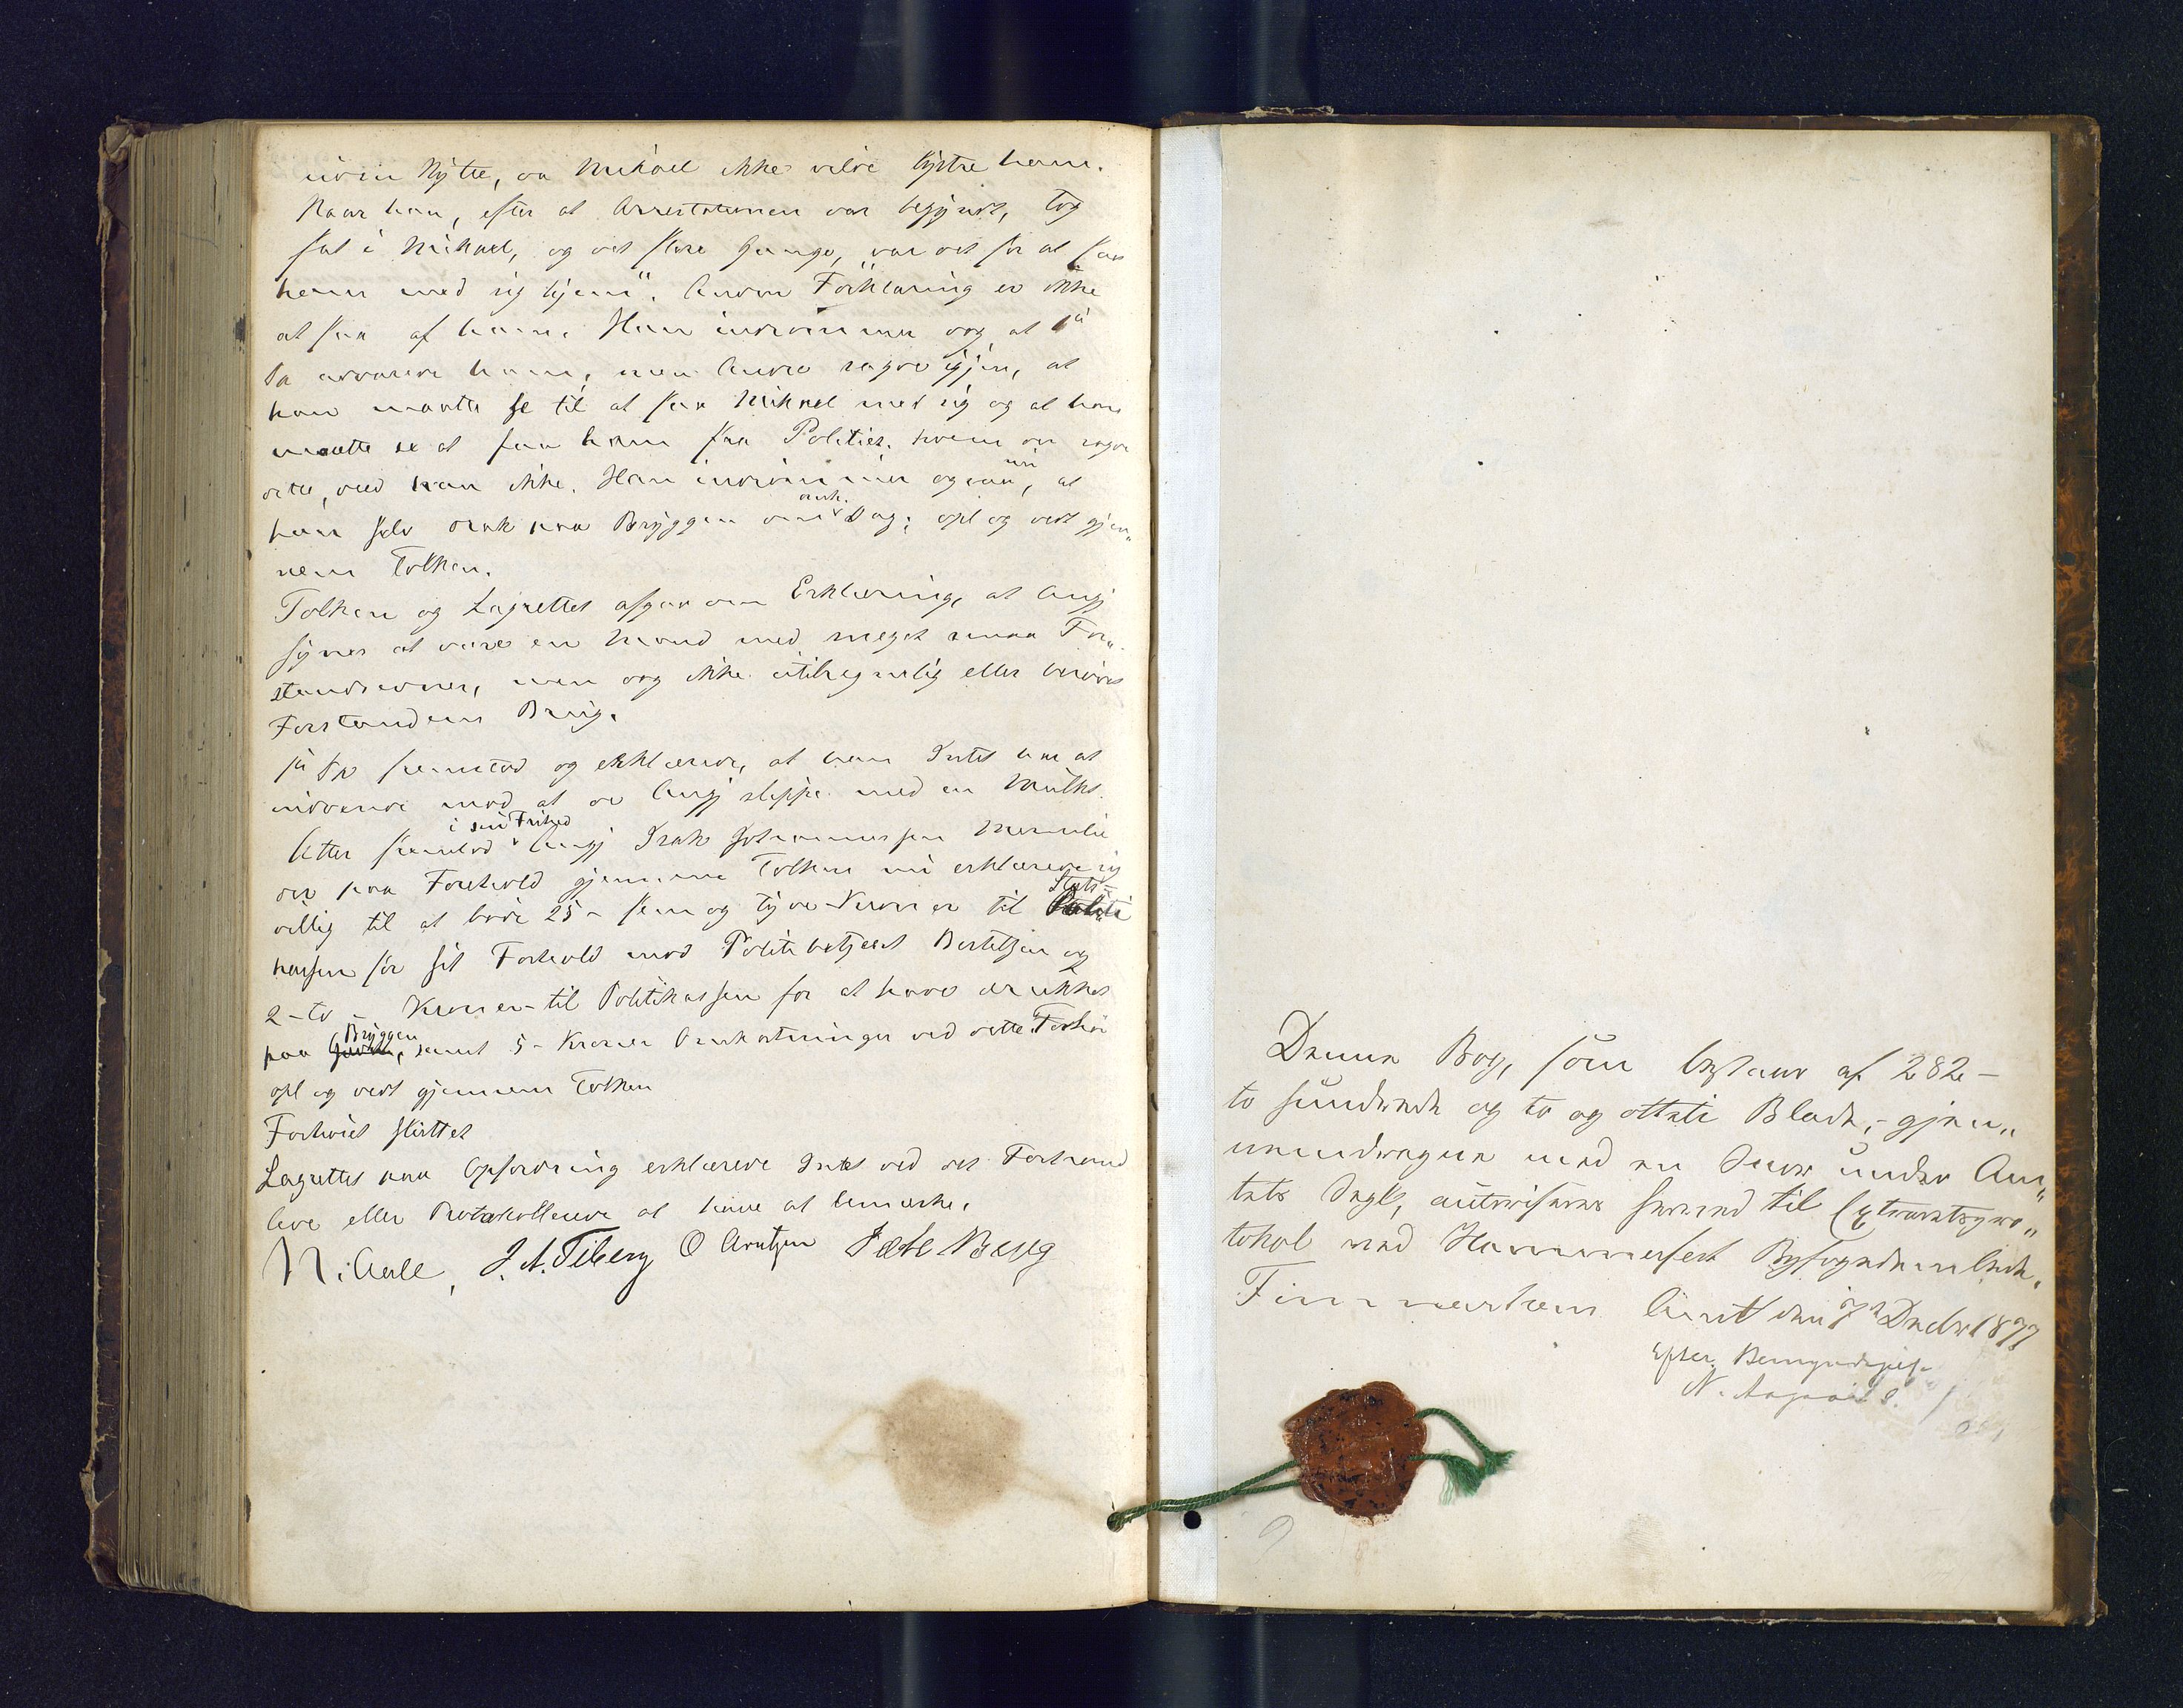 uden Nytte, da Mikael ikke vilde lystre ham.
Naar han, efter at Arrestationen var begyndt, tog
fat i Mikael, og det flere Gange, "var det for at faa
ham med sig hjem". Anden Forklaring er ikke
at faa af ham. Han indrømmer og, at
advarede ham, men Andre sagde igjen, at
han maatte se til at faa Mikael med sig og at han
maatte se at faa ham fra Politiet. Hvem der sagde
dette, ved han ikke. Han indrømmer ogsaa nu, at
han selv drak paa Bryggen omh. Dag; opl og vedt gjen„
nem Tolken.
Tolken og Lagrettet afgav den Erklæring, at Angj
synes at være en Mand med meget smaa For„
standsevner, men dog ikke utilregnelig eller berøvet
Forstandens Brug.
fremstod og erklærede, at han Intet har at
indvende mod at Angj slippe med en Mulkt.
Atter fremstod i sin Frihed Angj Isak Johannessen
der paa Forehold gjennem Tolken nu erklærede sig
villig til at bøde 25 - fem og tyve - Kroner til Stats-
kassen for sit Forhold mod Politibetjent Bertelsen og
2 - to - Kroner - til Politikassen for at have drukket
paa Bryggen, samt 5 - Kroner Omkostninger ved dette Forhør
opl og vedt gjennem Tolken
Forhøret sluttet
Lagrettet paa Opfordring erklærede Intet ved det Forhand
lede eller Protokollerede at have at bemærke.
N. Aall, J. A. Tiberg O Arntzen Berg
Denne Bog, som bestaar af 282 -
to hundrede og to og otteti Blade, - gjen„
nemdragen med en Snor under Am„
tets Segl, autoriseres herved til Extraretspro„
tokol ved Hammerfest Byfogedembede.
Finmarkens Amt den 7de Decbr 1877
Efter Bemyndigelse
N.